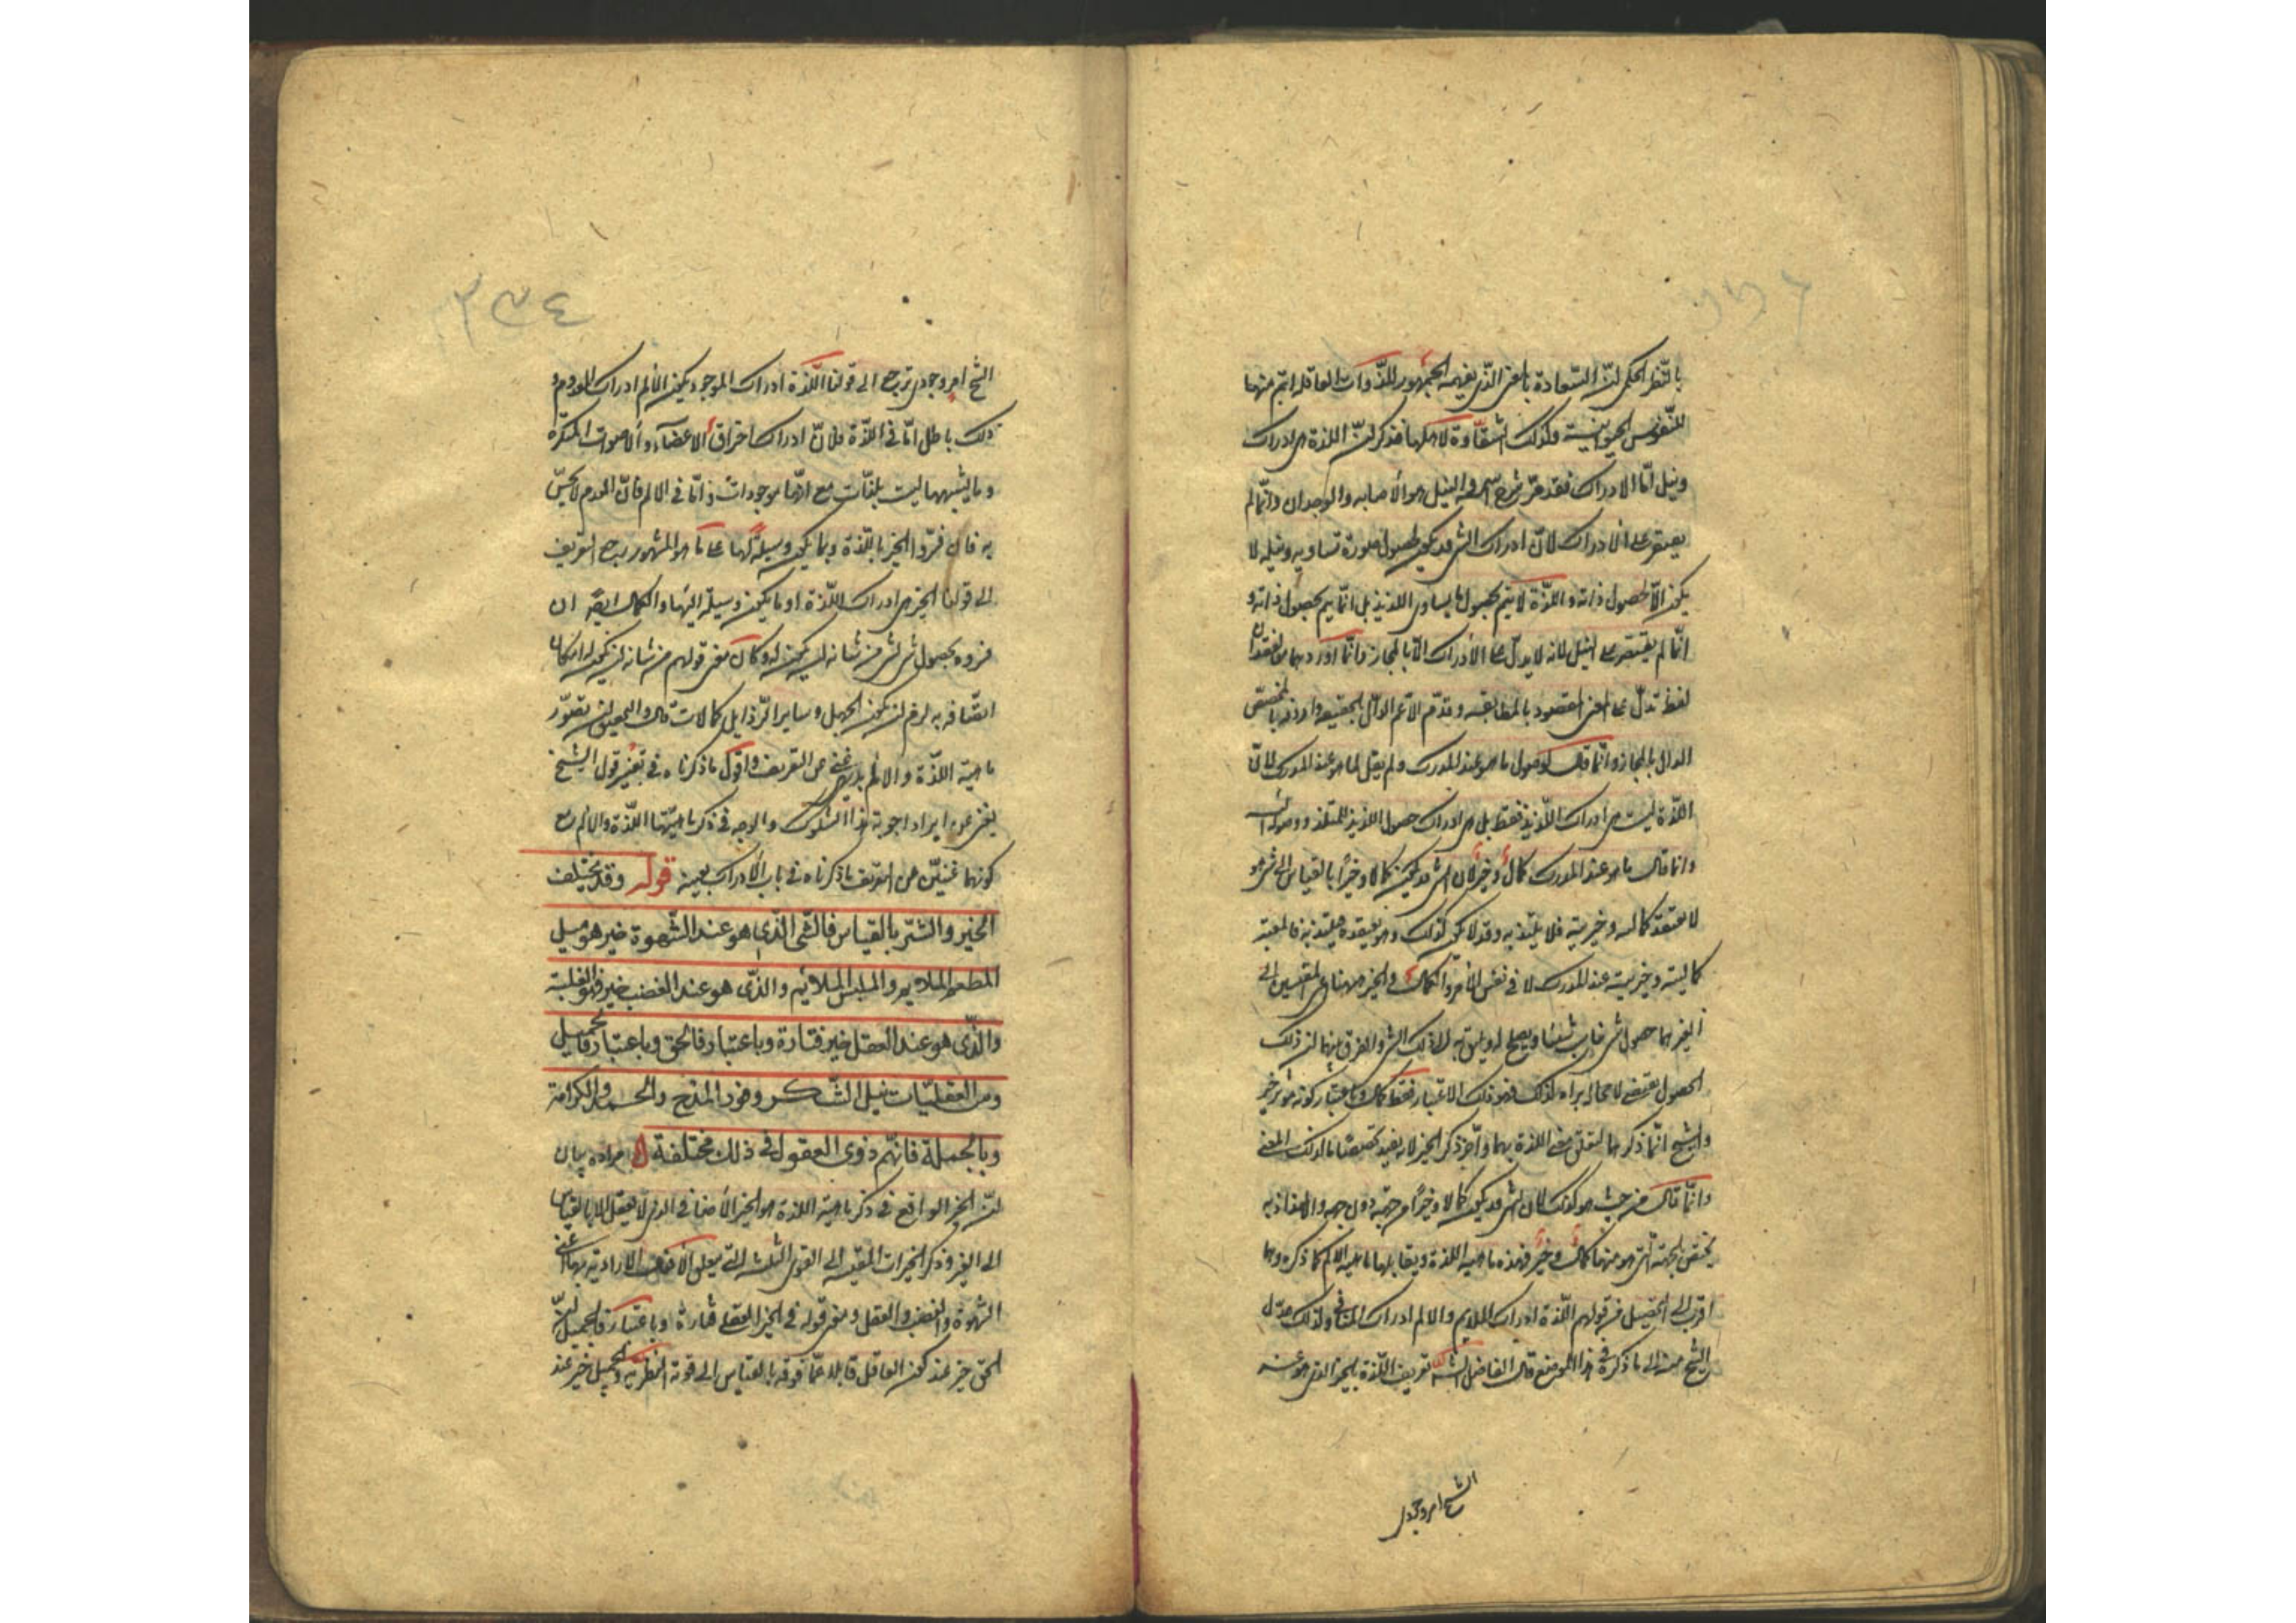 بالنظر الحكمى لان السعادة بالمعنى الذى يفهمه الجمهور للذوات العاقلة اتم منها
للنفوس الحيوانية وكذلك الشقاوة لاهلها فذكر ان اللذة هى ادراك
ونيل اما الادراك فقد مر شرح اسمه والنيل هو الاصابه والوجدان وانما لم
يقتصر على الادراك لان ادراك الشى قد يكون بحصول صورة تساويه ونيله لا
يكون الا بحصول ذاته واللذة لا يتم بحصول ما يساوى اللذيذ بل انما يتم بحصول ذاته و
انما لم يقتصر على النيل لانه لا يدل على الادراك الا بالمجاز وانما اوردهما معا لفقدان
لفظ تدل على المعنى المقصود بالمطابقه وقدم الاعم الدال بالحقيقه واردفه بالمخصص
الدال بالمجاز وانما قال لوصول ما هو عند المدرك ولم يقل لما هو عند المدرك لان
اللذة ليست هى ادراك اللذيذ فقط بل هى ادراك حصول اللذيذ للملتذ ووصوله اليه
وانما قال ما هو عند المدرك كمال وخير لان الشى قد يكون كمالا وخيرا بالقياس الى شى هو
لا يعتقد كماليته وخيريته فلا يلتذ به وقد لا يكون كذلك وهو يعتقده فيلتذ به فالمعتبر
كماليته وخيريته عند المدرك لا فى نفس الامر والكمال والخير ههنا اعنى المقيسين الى
الغير هما حصول شى لما من شانه ان يصلح له ويليق به لذلك الشى والفرق بينهما ان ذلك
الحصول يقتضى لا محالة براءة لذلك فهو بذلك الاعتبار فقط كمال وباعتبار كونه موثرا خير
والشيخ انما ذكرهما لتعلق معنى اللذة بهما واخر ذكر الخير لانه يفيد تخصيصا ما لذلك المعنى
وانما قال من حيث هو كذلك لان الشى قد يكون كمالا وخيرا من جهة دون جهة والالتذاذ به
يختص بالجهة التى هو منها كمال وخير فهذه ماهية اللذة ويقابلها ماهية الالم كما ذكره وهما
اقرب الى التحصيل من قولهم اللذة ادراك الملايم والالم ادراك المنافى ولذلك عدل
الشيخ منه الى ما ذكره فى هذا الموضع قال الفاضل الشارح تعريف اللذة بالخير الذى هو عند
الشيخ امر وجودى
٢٣٤
الشيخ امر وجودى يرجع الى قولنا اللذة ادراك الموجود ويكون الالم ادراك المعدوم و
ذلك باطل اما فى اللذة فلان ادراك احتراق الاعضاء والاصوات المنكرة
وما يشبهها ليست بلذات مع انها موجودات واما فى الالم فان العدم لا يحس
به فان فسروا الخير باللذة وبما يكون وسيلة لها على ما هو المشهور رجع التعريف
الى قولنا الخير هى ادراك اللذة او ما يكون وسيلة اليها والكمال ايضا ان
فسروه بحصول شى لشى من شانه ان يكون له وكان معنى قولهم من شانه ان يكون له امكان
اتصافه به لزم ان يكون الجهل وساير الرذايل كمالات قال والتحقيق ان تصور
ماهية اللذة والالم بديهى غنى عن التعريف واقول ما ذكرناه فى تفسير قول الشيخ
يغنى عن ايراد اجوبة هذا الشكوك والوجه فى ذكر ماهيتها اللذة والالم مع
كونهما غنيين عن التعريف ما ذكرناه فى باب الادراك بعينه قوله وقد يختلف
الخير والشر بالقياس فالشى الذى هو عند الشهوة خير هو مثل
المطعم الملايم والملبس الملائم والذى هو عند الغضب خير فهو الغلبة
والذى هو عند العقل خير فتارة وباعتبار فالحق وباعتبار فالجميل
ومن العقليات نيل الشكر ووفور المدح والحمد والكرامة
وبالجملة فان همم ذوى العقول فى ذلك مختلفة مراده بيان
ان الخير الواقع فى ذكر ماهية اللذة هو الخير الاضافى الذى لا يعقل الا بالقياس
الى الغير وذكر الخيرات المقيسة الى القوى الثلثه التى يتعلق الافعال الارادية بها اعنى
الشهوة والغضب والعقل ومعنى قوله فى الخير العقلى فتارة وباعتبار فالجميل ان
الحق خير عند كون العاقل قابلا عما فوقه بالقياس الى قوته النظرية والجميل خير عند